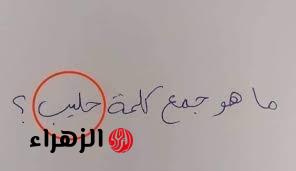 ما هو جمع كلمة حليب ؟
الزهراء